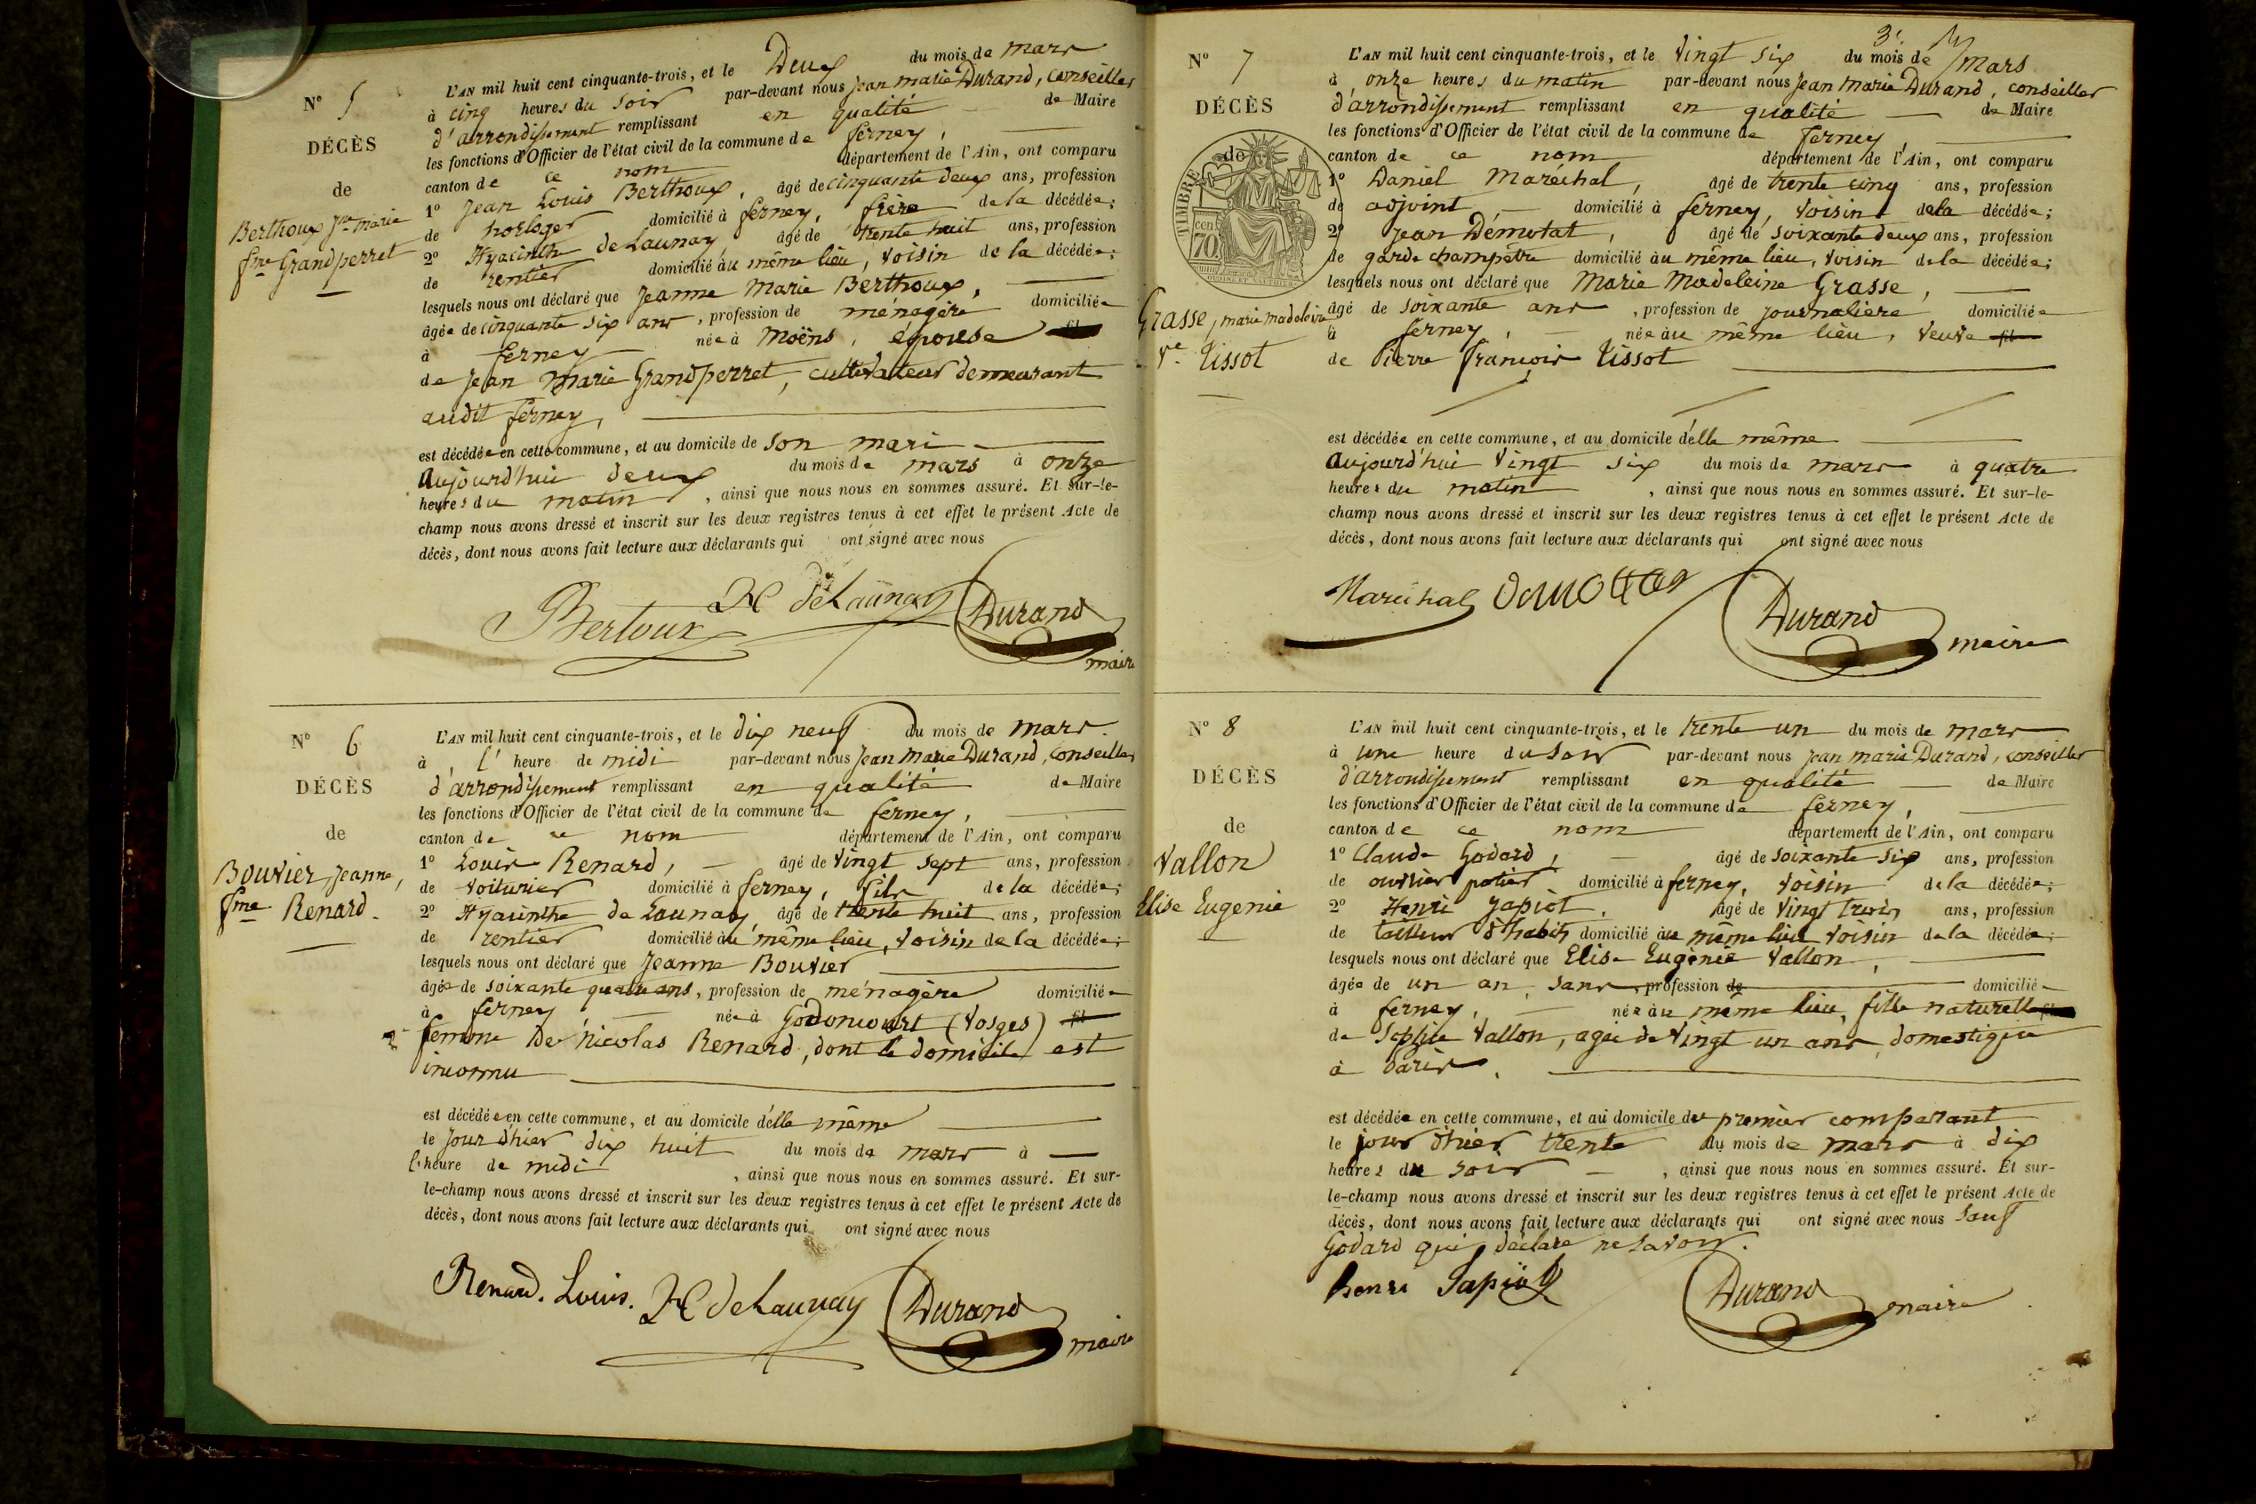 N° 5
DÉCÈS
de
Berthoux Jne marie
fme Grandperret
L'AN mil huit cent cinquante-trois, et le Deux du mois de mars
à cinq heures du soir par-devant nous Jean marie Durand, conseiller
d'arrondissement remplissant en qualité de Maire
les fonctions d'Officier de l'état civil de la commune de ferney,
canton de ce nom département de l'Ain, ont comparu
1° Jean Louis Berthoux, âgé de cinquante deux ans, profession
de horloger domicilié à ferney, frère de la décédée;
2° Hyacinthe de Launay, âgé de trente huit ans, profession
de rentier domicilié au même lieu, voisin de la décédée;
lesquels nous ont déclaré que Jeanne Marie Berthoux,
âgée de cinquante six ans, profession de ménagère domiciliée
à ferney née à Moëns, épouse fil
de Jean Marie Grandperret, cultivateur demeurant
audit ferney,
est décédée en cette commune, et au domicile de son mari
aujourd'hui deux du mois de mars à onze
heures du matin, ainsi que nous nous en sommes assuré. Et sur-le-
champ nous avons dressé et inscrit sur les deux registres tenus à cet effet le présent Acte de
décès, dont nous avons fait lecture aux déclarants qui ont signé avec nous
Bertoux H deLaunay Durand
maire
N° 6
DÉCÈS
de
Bouvier, Jeanne,
fme Renard.
L'AN mil huit cent cinquante-trois, et le dix neuf du mois de mars
à l' heure de midi par-devant nous Jean Marie Durand, conseiller
d'arrondissement remplissant en qualité de Maire
les fonctions d'Officier de l'état civil de la commune de ferney,
canton de ce nom département de l'Ain, ont comparu
1° Louis Renard, âgé de vingt sept ans, profession
de voiturier domicilié à ferney, fils de la décédée;
2° Hyacinthe de Launay, âgé de trente huit ans, profession
de rentier domicilié au même lieu, voisin de la décédée;
lesquels nous ont déclaré que Jeanne Bouvier
âgée de soixante quatre ans, profession de ménagère domiciliée
à ferney née à Godoncourt (Vosges) fil
femme de Nicolas Renard, dont le domicile est
inconnu
est décédée en cette commune, et au domicile d'elle même
le jour d'hier dix huit du mois de mars à
l'heure de midi, ainsi que nous nous en sommes assuré. Et sur-
le-champ nous avons dressé et inscrit sur les deux registres tenus à cet effet le présent Acte de
décès, dont nous avons fait lecture aux déclarants qui ont signé avec nous
Renard. Louis. H deLaunay Durand
maire
N° 7
DÉCÈS
de
TIMBRE
cent
70
Grasse, marie madeleine
Ve Tissot
L'AN mil huit cent cinquante-trois, et le vingt six du mois de mars
à onze heures du matin par-devant nous Jean Marie Durand, conseiller
d'arrondissement remplissant en qualité de Maire
les fonctions d'Officier de l'état civil de la commune de ferney,
canton de ce nom département de l'Ain, ont comparu
1° Daniel Marechal, âgé de trente cinq ans, profession
de adjoint domicilié à ferney, voisin de la décédée;
2° Jean Démotat, âgé de soixante deux ans, profession
de garde champêtre domicilié au même lieu, voisin de la décédée;
lesquels nous ont déclaré que Marie Madeleine Grasse,
âgé de soixante ans, profession de journalière domiciliée
à ferney, née au même lieu, veuve fil
de Pierre François Tissot
est décédée en cette commune, et au domicile d'elle même
aujourd'hui vingt six du mois de mars à quatre
heures du matin, ainsi que nous nous en sommes assuré. Et sur-le-
champ nous avons dressé et inscrit sur les deux registres tenus à cet effet le présent Acte de
décès, dont nous avons fait lecture aux déclarants qui ont signé avec nous
Maréchal Durand
maire
N° 8
DÉCÈS
de
Vallon
Elise Eugénie
L'AN mil huit cent cinquante-trois, et le trente un du mois de mars
à une heure du soir par-devant nous Jean marie Durand, conseiller
d'arrondissement remplissant en qualité de Maire
les fonctions d'Officier de l'état civil de la commune de ferney,
canton de ce nom département de l'Ain, ont comparu
1° Claude Godard, âgé de soixante six ans, profession
de ouvrier potier domicilié à ferney, voisin de la décédée;
2° Henri Japiot, âgé de vingt trois ans, profession
de tailleur d'habits domicilié au même lieu voisin de la décédée;
lesquels nous ont déclaré que Elise Eugénie Vallon,
âgée de un an, sans profession de domiciliée
à ferney, née au même lieu, fille naturelle fil
de Sophie Vallon, agée de vingt un ans, domestique
à Paris,
est décédée en cette commune, et au domicile du premier comparant
le jour d'hier trente du mois de mars à dix
heures du soir, ainsi que nous nous en sommes assuré. Et sur-
le-champ nous avons dressé et inscrit sur les deux registres tenus à cet effet le présent Acte de
décès, dont nous avons fait lecture aux déclarants qui ont signé avec nous sauf
Godard qui déclare ne savoir.
henri Japiot Durand
maire